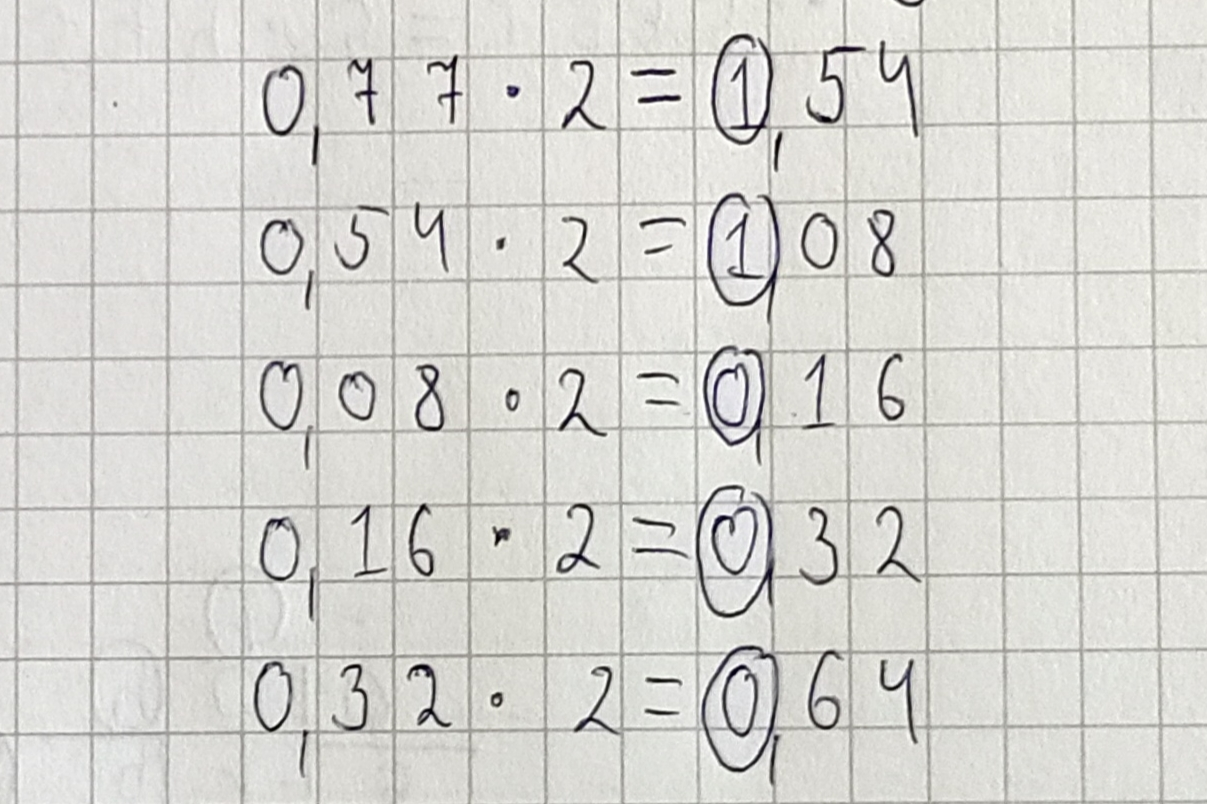 0,77 · 2 = 1,54
0,54 · 2 = 1,08
0,08 · 2 = 0,16
0,16 · 2 = 0,32
0,32 · 2 = 0,64